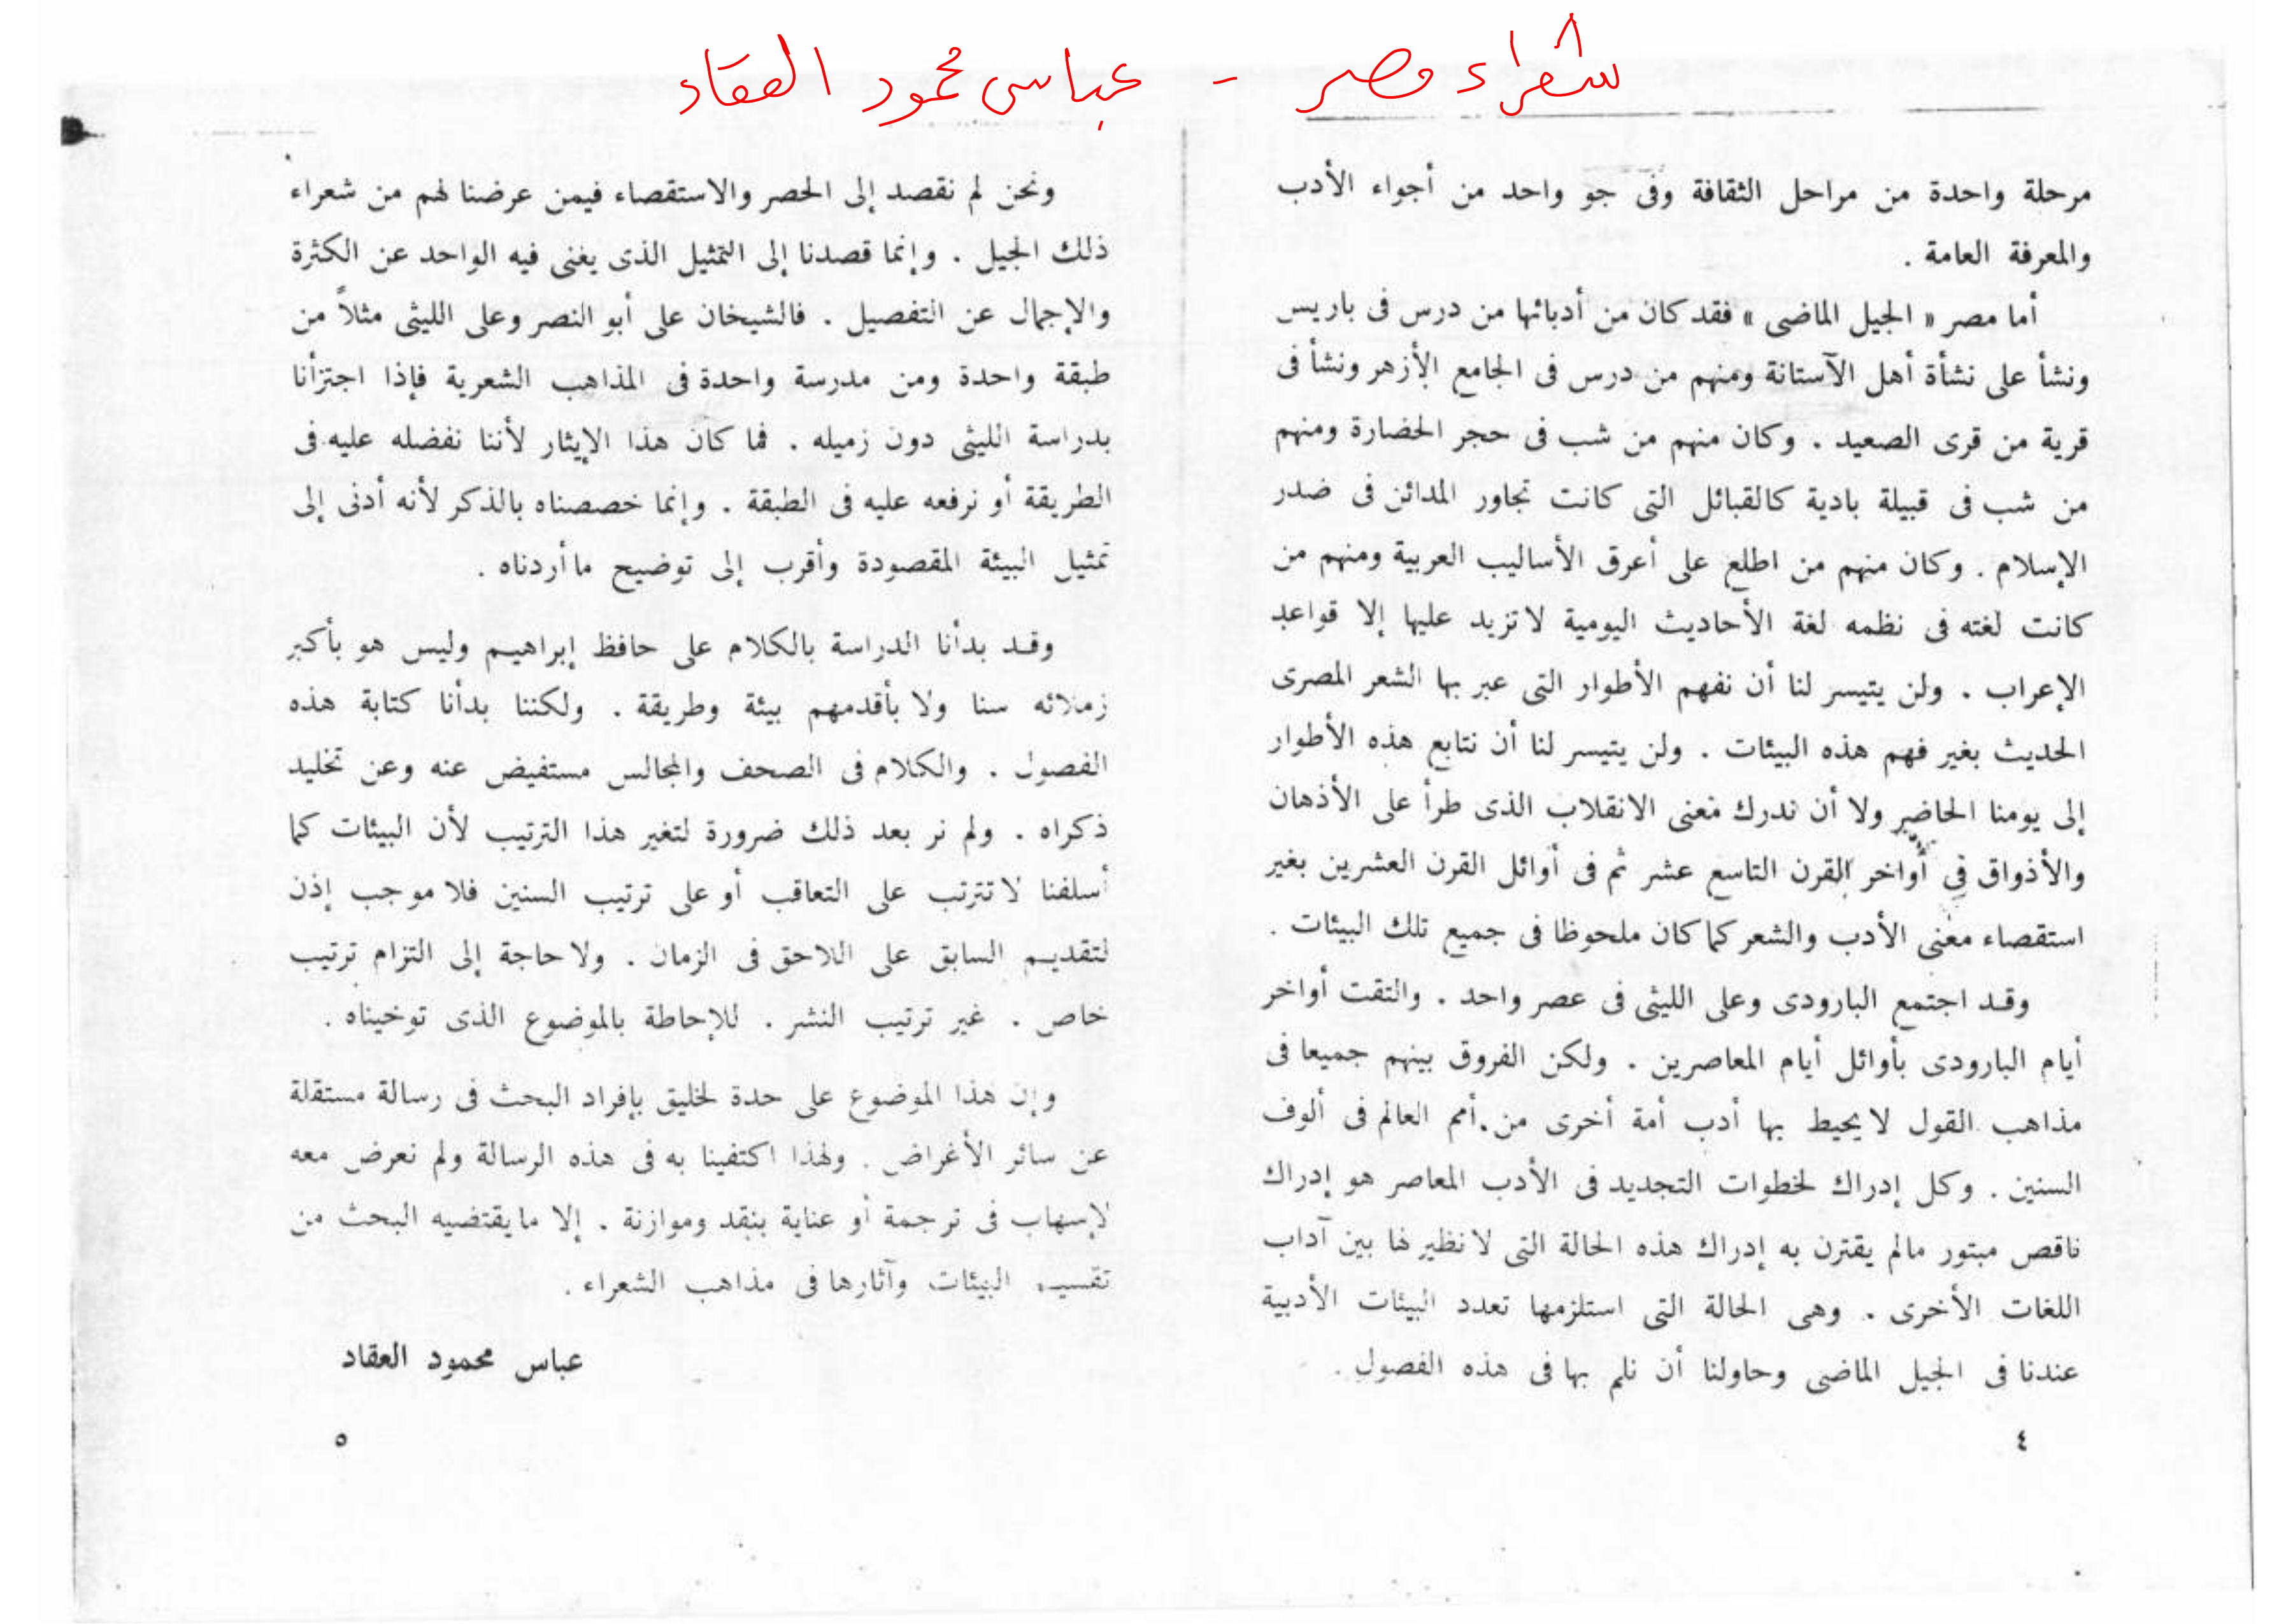 شعراء مصر - عباس محمود العقاد
مرحلة واحدة من مراحل الثقافة وفى جو واحد من أجواء الأدب
والمعرفة العامة .
أما مصر « الجيل الماضى » فقد كان من أدبائها من درس فى باريس
ونشأ على نشأة أهل الآستانة ومنهم من درس فى الجامع الأزهر ونشأ فى
قرية من قرى الصعيد . وكان منهم من شب فى حجر الحضارة ومنهم
من شب فى قبيلة بادية كالقبائل التى كانت تجاور المدائن فى صدر
الإسلام . وكان منهم من اطلع على أعرق الأساليب العربية ومنهم من
كانت لغته فى نظمه لغة الأحاديث اليومية لا تزيد عليها إلا قواعد
الإعراب . ولن يتيسر لنا أن نفهم الأطوار التى عبر بها الشعر المصرى
الحديث بغير فهم هذه البيئات . ولن يتيسر لنا أن نتابع هذه الأطوار
إلى يومنا الحاضر ولا أن ندرك معنى الانقلاب الذى طرأ على الأذهان
والأذواق فى أواخر القرن التاسع عشر ثم فى أوائل القرن العشرين بغير
استقصاء معنى الأدب والشعر كما كان ملحوظا فى جميع تلك البيئات .
وقد اجتمع البارودى وعلى الليثى فى عصر واحد . والتقت أواخر
أيام البارودى بأوائل أيام المعاصرين . ولكن الفروق بينهم جميعا فى
مذاهب القول لا يحيط بها أدب أمة أخرى من أمم العالم فى ألوف
السنين . وكل إدراك لخطوات التجديد فى الأدب المعاصر هو إدراك
ناقص مبتور مالم يقترن به إدراك هذه الحالة التى لا نظير لها بين آداب
اللغات الأخرى . وهى الحالة التى استلزمها تعدد البيئات الأدبية
عندنا فى الجيل الماضى وحاولنا أن نلم بها فى هذه الفصول .
٤
ونحن لم نقصد إلى الحصر والاستقصاء فيمن عرضنا لهم من شعراء
ذلك الجيل . وإنما قصدنا إلى التمثيل الذى يغنى فيه الواحد عن الكثرة
والإجمال عن التفصيل . فالشيخان على أبو النصر وعلى الليثى مثلاً من
طبقة واحدة ومن مدرسة واحدة فى المذاهب الشعرية فإذا اجتزأنا
بدراسة الليثى دون زميله . فما كان هذا الإيثار لأننا نفضله عليه فى
الطريقة أو نرفعه عليه فى الطبقة . وإنما خصصناه بالذكر لأنه أدنى إلى
تمثيل البيئة المقصودة وأقرب إلى توضيح ما أردناه .
وقد بدأنا الدراسة بالكلام على حافظ إبراهيم وليس هو بأكبر
زملائه سنا ولا بأقدمهم بيئة وطريقة . ولكننا بدأنا كتابة هذه
الفصول . والكلام فى الصحف والمجالس مستفيض عنه وعن تخليد
ذكراه . ولم نر بعد ذلك ضرورة لتغير هذا الترتيب لأن البيئات كما
أسلفنا لا تترتب على التعاقب أو على ترتيب السنين فلا موجب إذن
لتقديم السابق على اللاحق فى الزمان . ولا حاجة إلى التزام ترتيب
خاص . غير ترتيب النشر . للإحاطة بالموضوع الذى توخيناه .
وإن هذا الموضوع على حدة لخليق بإفراد البحث فى رسالة مستقلة
عن سائر الأغراض . ولهذا اكتفينا به فى هذه الرسالة ولم نعرض معه
لإسهاب فى ترجمة أو عناية بنقد وموازنة . إلا ما يقتضيه البحث من
تقسيم البيئات وآثارها فى مذاهب الشعراء .
عباس محمود العقاد
٥